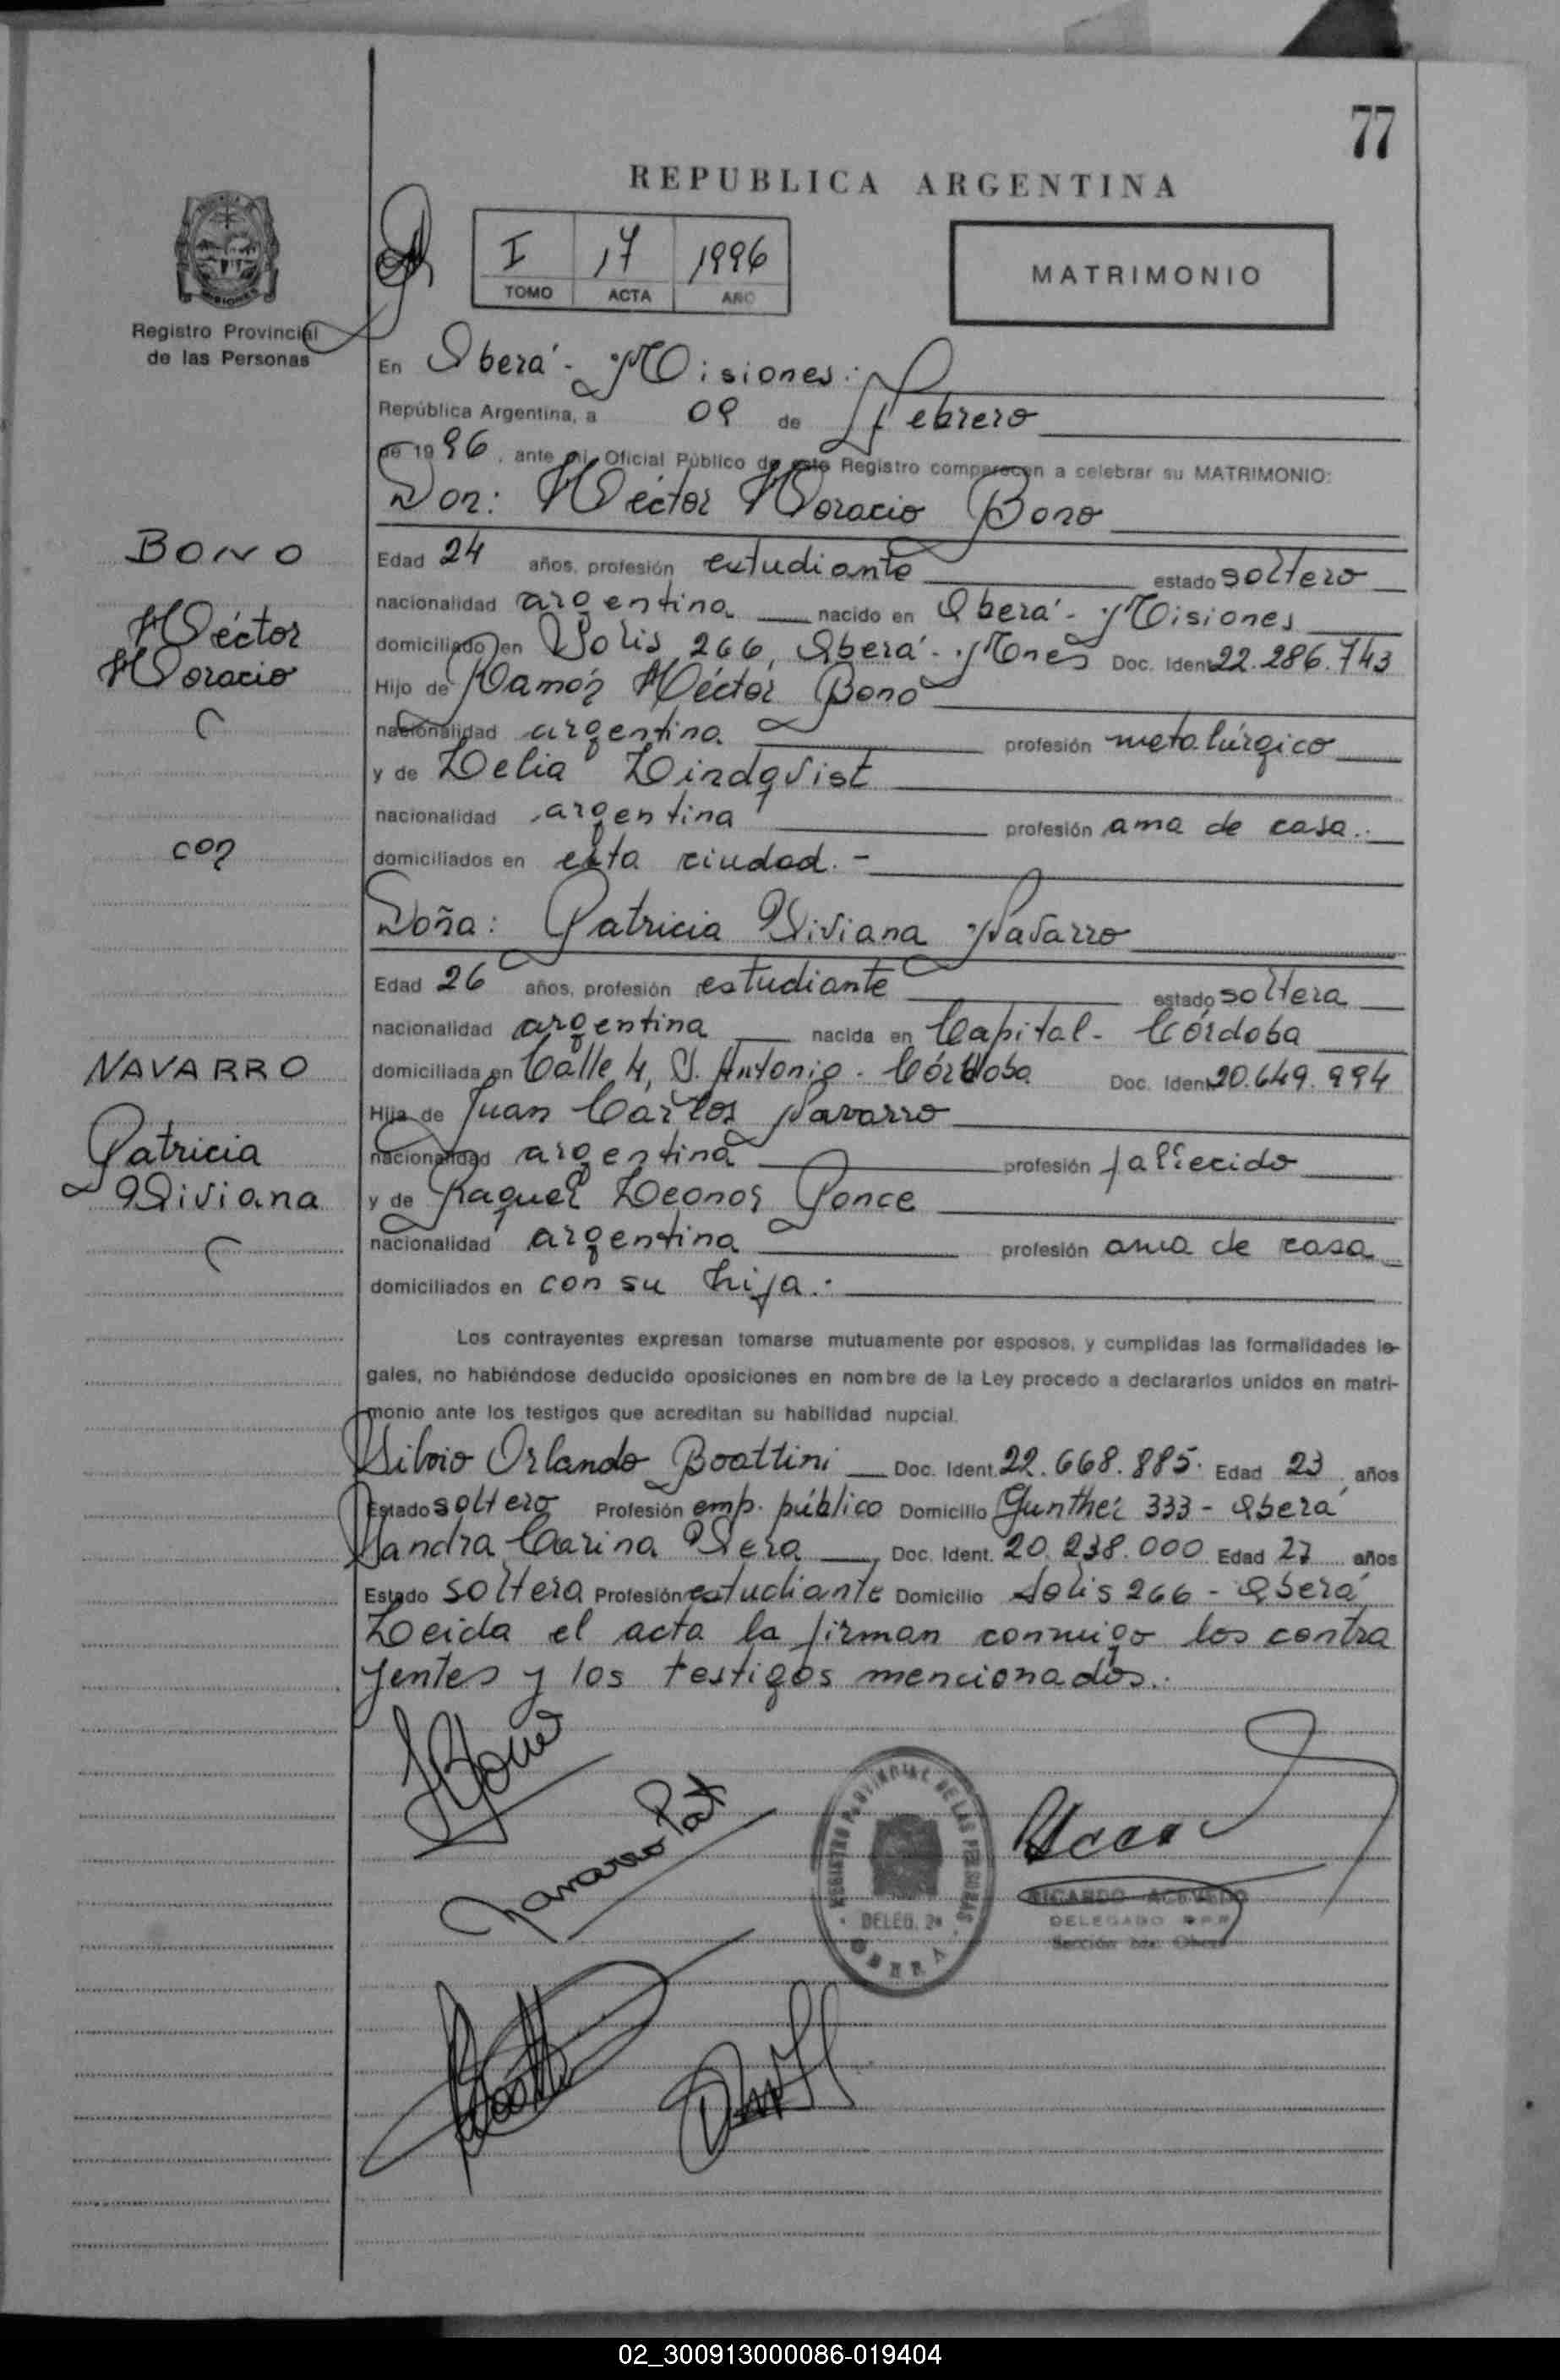 77
REPUBLICA ARGENTINA
I 17 1996
TOMO ACTA AÑO
MATRIMONIO
MISIONES
Registro Provincial
de las Personas
En Oberá - Misiones.
República Argentina, a 09 de Febrero
de 1996, ante mi, Oficial Público de este Registro comparecen a celebrar su MATRIMONIO:
Don: Héctor Horacio Bono
BONO
Edad 24 años, profesión estudiante estado soltero
nacionalidad argentina nacido en Oberá - Misiones
Héctor
domiciliado en Solis 266, Oberá - Mnes Doc. Ident. 22.286.743
Horacio
Hijo de Ramón Héctor Bono
nacionalidad argentina profesión metalúrgico
y de Delia Lindqvist
nacionalidad argentina profesión ama de casa.
con
domiciliados en esta ciudad. -
Doña: Patricia Viviana Navarro
Edad 26 años, profesión estudiante estado soltera
nacionalidad argentina nacida en Capital - Córdoba
NAVARRO
domiciliada en Calle 4, S. Antonio - Córdoba Doc. Ident. 20.649.994
Hija de Juan Carlos Navarro
Patricia
nacionalidad argentina profesión fallecido
Viviana
y de Raquel Leonor Ponce
nacionalidad argentina profesión ama de casa
domiciliados en con su hija.
Los contrayentes expresan tomarse mutuamente por esposos, y cumplidas las formalidades le-
gales, no habiéndose deducido oposiciones en nombre de la Ley procedo a declararlos unidos en matri-
monio ante los testigos que acreditan su habilidad nupcial.
Silvio Orlando Boattini Doc. Ident. 22.668.885. Edad 23 años
Estado soltero Profesión emp. público Domicilio Gunther 333 - Oberá
Sandra Carina Vera Doc. Ident. 20.238.000 Edad 27 años
Estado soltera Profesión estudiante Domicilio Solis 266 - Oberá
Leida el acta la firman conmigo los contra
yentes y los testigos mencionados.
Navarro Pat
REGISTRO PROVINCIAL DE LAS PERSONAS
DELEG. 2ª
OBERA
RICARDO ACEVEDO
DELEGADO R.P.P.
02_300913000086-019404